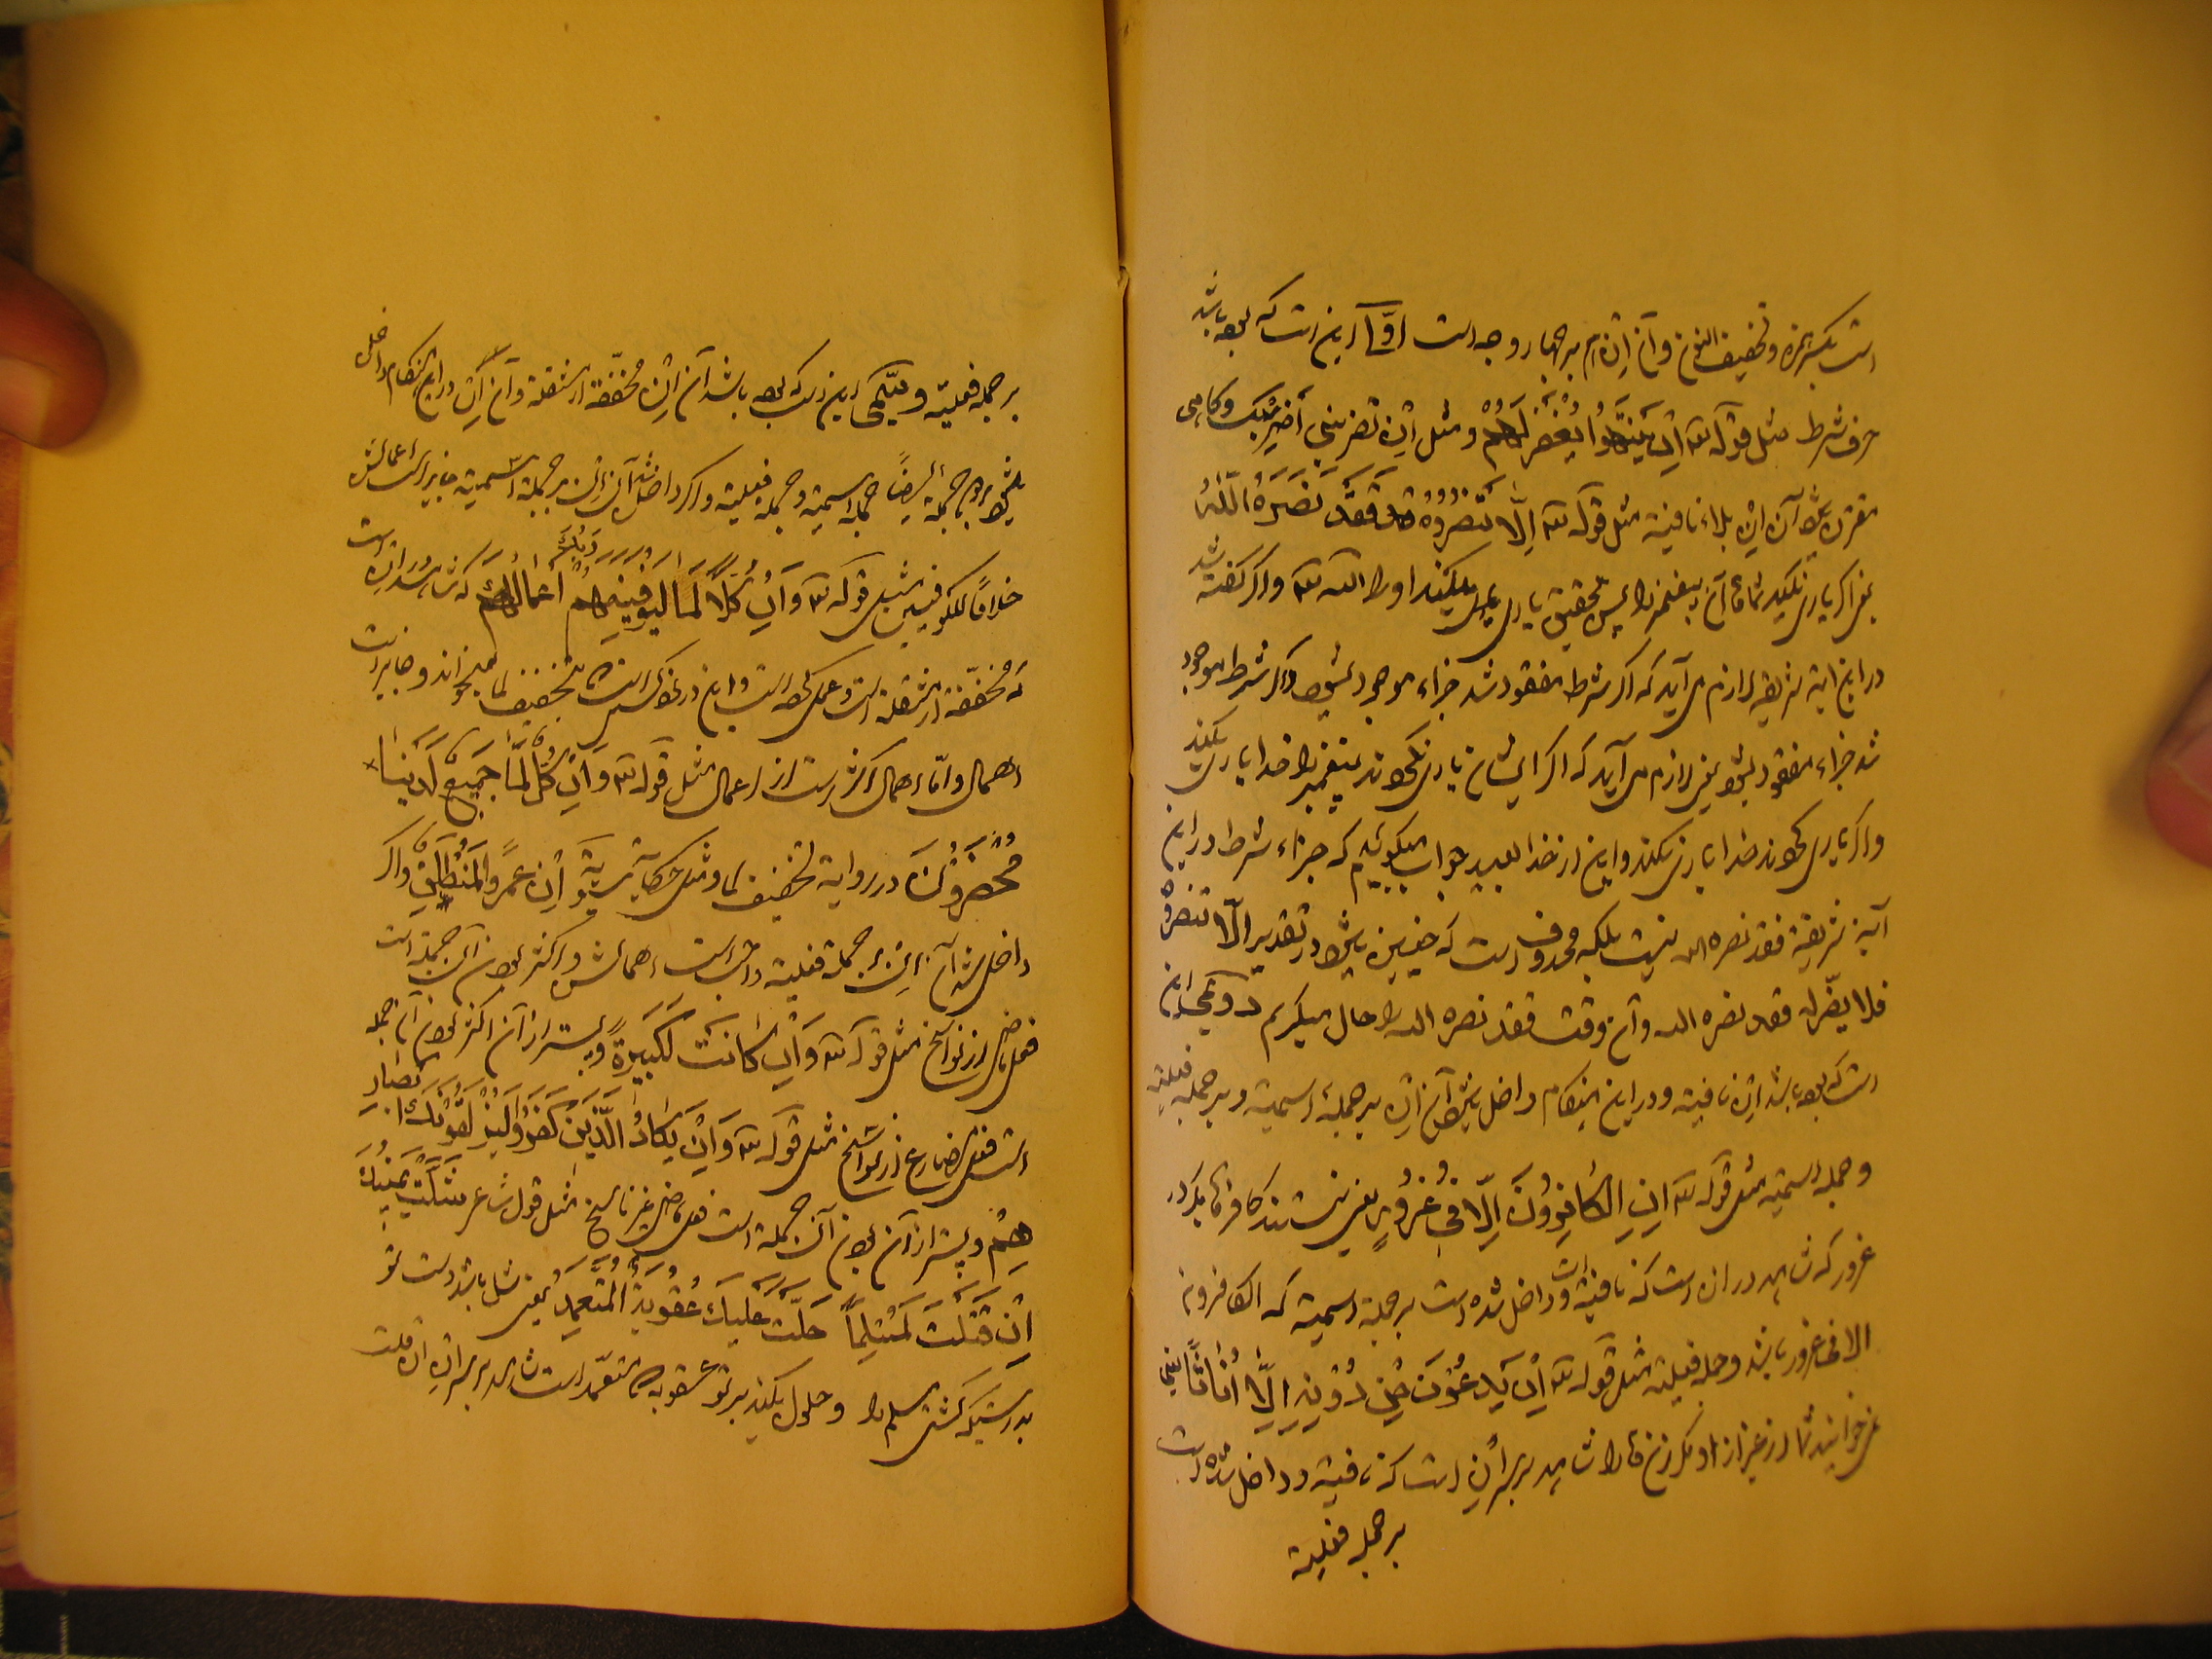 است بکسر همزه و تخفیف النون و آن اِن هم بر چهار وجه است اوّل این است که بوده باشد
حرف شرط مثل قوله تعه اِن یَنتَهُوا یُغفَر لَهُم و مثل اِن تضربنی اَضربک و کاهی
مقترن میشود آن اِن بلاء نافیه مثل قوله تعه اِلّا تَنصُرُوهُ فَقَد نَصَرَهُ اللّٰهُ
یعنی اکر یاری نکنید شماها آن پیغمبر را پس بتحقیق یاری میکند او را الله تعه و اکر کفته شد
در این ایه شریفه لازم می آید که اکر شرط مفقود شد جزاء موجود بشود و اکر شرط موجود
شد جزاء مفقود بشود یعنی لازم می آید که اکر ایشان یاری نکردند پیغمبر را خدا یاری میکند
و اکر یاری کردند خدا یاری نمیکند و این از خدا بعید جواب میکوئیم که جزاء شرط در این
آیه شریفه فقد نصره الله نیست بلکه محذوف است که چنین میشود در تقدیر الّا تنصروه
فلا یضرّه فقد نصره الله و آن وقت فقد نصره الله را حال میکیریم دویّمی این
است که بوده باشد اِن نافیه و در این هنکام داخل میشود آن اِن بر جملهٔ اسمیه و بر جمله فعلیه
و جمله اسمیه مثل قوله تعه اِنِ الکافِرُونَ اِلّا فی غُرُورٍ یعنی نیستند کافرها مکر در
غرور که شاهد در اِن است که نافیه است و داخل شده است بر جمله اسمیه که الکافرون
الا فی غرور باشد و جمله فعلیه مثل قوله تعه اِن یَدعُونَ مِن دُونِهِ اِلّا اُناثاً یعنی
نمی خوانند شما از غیر از او مکر زن ها را شاهد بر سر اِن است که نافیه و داخل شده است
بر جمله فعلیه
بر جمله فعلیه و سیّمی این است که بوده باشد آن اِن مخفّفه از مثقله و آن اِن در این هنکام داخل
میشود بر دو جمله ایضاً جمله اسمیه و جمله فعلیه و اکر داخل شد آن اِن بر جملهٔ اسمیه جایز است اعمالش
خلافاً للکوفیین مثل قوله تعه وَ اِن کُلّاً لَمّا لَیُوَفِّیَنَّهُم رَبُّکَ اَعمالَهُم که شاهد سر اِن است
که مخفّفه از مثقله است و عمل کرده است و این در نزد کسی است که بتخفیف لما میخواند و جایز است
اهمال و امّا اهمال اکثر است از اعمال مثل قوله تعه وَ اِن کُلٌّ لَمّا جَمیعٌ لَدَینا
مُحضَرُونَ در روایه تخفیف لما و مثل حکایة سیبویه اِن عَمرواً لَمُنطَلِقٌ و اکر
داخل شد آن اِن بر جملهٔ فعلیه واجب است اهمالش و اکثر بودن آن جمله است
فعل ماضی از نواسخ مثل قوله تعه وَ اِن کانَت لَکَبیرَةً و پستر از آن اکثر بودن آن جمله
است فعل مضارع از نواسخ مثل قوله تعه وَ اِن یَکادُ الَّذینَ کَفَرُوا لَیُزلِقُونَکَ بِاَبصارِ
هِم و پستر از آن بودن آن جمله است فعل ماضی غیر ناسخ مثل قول شاعر شَلَّت یَمینُکَ
اِن قَتَلتَ لَمُسلِماً حَلَّت عَلَیکَ عُقُوبَةُ المُتَعَمِّدِ یعنی شل باشد دست تو
بدرستیکه کشتی مسلم را و حلول بکند بر تو عقوبه متعمّد است شاهد بر سر اِن قتلت